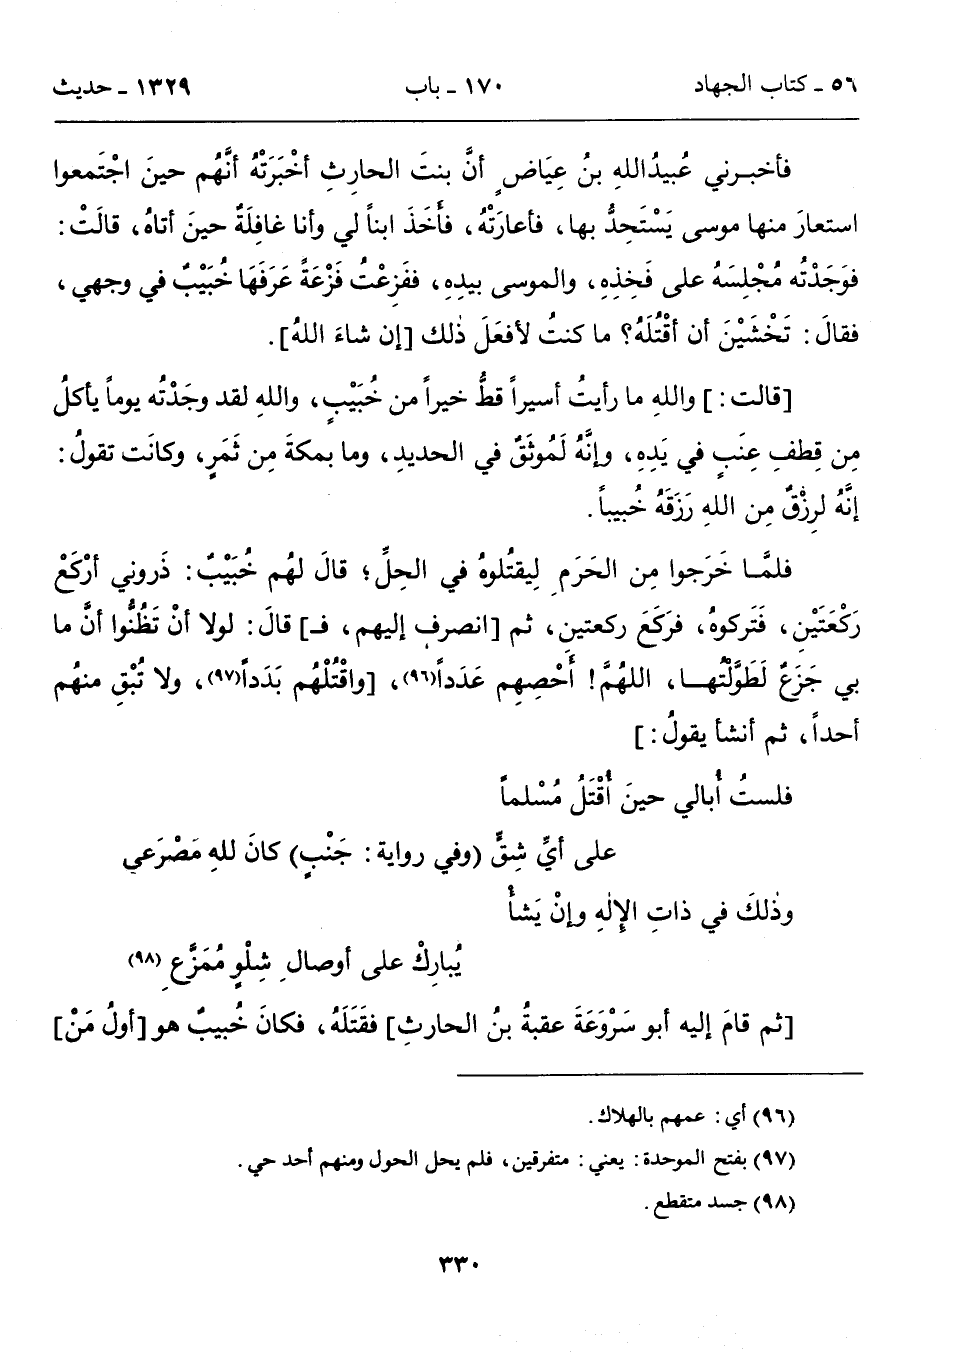 ٥٦ ـ كتاب الجهاد
١٧٠ ـ باب
١٣٢٩ ـ حديث
فأخبرني عُبيدُاللهِ بنُ عِيَاضٍ أنَّ بنتَ الحارِثِ أخْبَرَتْهُ أنَّهُم حينَ اجْتَمعوا
استعارَ منها موسى يَسْتَحِدُّ بها، فأعارَتْهُ، فأَخَذَ ابناً لي وأنا غافِلَةٌ حينَ أتاهُ، قالَتْ:
فوَجَدْتُه مُجْلِسَهُ على فَخِذِهِ، والموسى بيدِهِ، ففَزِعْتُ فَزْعَةً عَرَفَهَا خُبَيْبٌ في وجهي،
فقالَ: تَخْشَيْنَ أن أقْتُلَهُ؟ ما كنتُ لأفعَلَ ذٰلك [إن شاءَ اللهُ].
[قالت:] واللهِ ما رأيتُ أسيراً قطُّ خيراً من خُبَيْبٍ، واللهِ لقد وجَدْتُه يوماً يأكلُ
مِن قِطفِ عِنَبٍ في يَدِهِ، وإنَّهُ لَمُوثَقٌ في الحديدِ، وما بمكةَ مِن ثَمَرٍ، وكانَت تقولُ:
إنَّهُ لرِزْقٌ مِن اللهِ رَزَقَهُ خُبيباً.
فلمَّا خَرَجوا مِن الحَرَمِ لِيقتُلوهُ في الحِلِّ؛ قالَ لهُم خُبَيْبٌ: ذَروني أرْكَعْ
رَكْعَتَيْنِ، فَتَركوهُ، فرَكَعَ ركعتينِ، ثم [انصرف إليهم، فـ] قالَ: لولا أنْ تَظُنُّوا أنَّ ما
بي جَزَعٌ لَطَوَّلْتُهـا، اللهُمَّ! أَحْصِهِم عَدَداً(٩٦)، [واقْتُلْهُم بَدَداً(٩٧)، ولا تُبْقِ منهُم
أحداً، ثم أنشأ يقولُ:]
فلستُ أُبالي حينَ أُقْتَلُ مُسْلماً
على أيِّ شِقٍّ (وفي رواية: جَنْبٍ) كانَ للهِ مَصْرَعي
وذٰلكَ في ذاتِ الإِلٰهِ وإنْ يَشأْ
يُبارِكْ على أوصالِ شِلْوٍ مُمَزَّعِ(٩٨)
[ثم قامَ إليه أبو سَرْوَعَةَ عقبةُ بنُ الحارثِ] فقَتَلَهُ، فكانَ خُبيبٌ هو [أولُ مَنْ]
(٩٦) أي: عمهم بالهلاك.
(٩٧) بفتح الموحدة: يعني: متفرقين، فلم يحل الحول ومنهم أحد حي.
(٩٨) جسد متقطع.
٣٣٠